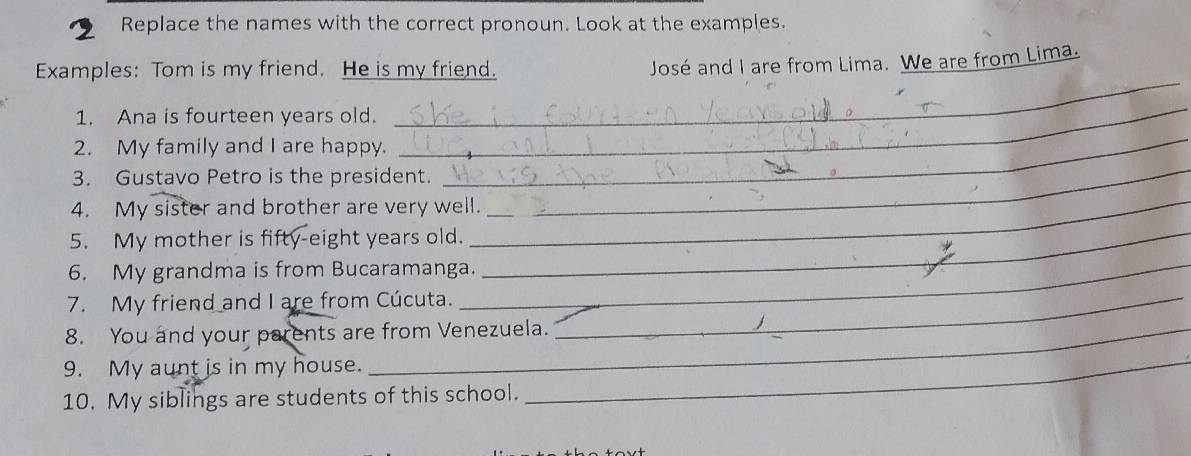 2 Replace the names with the correct pronoun. Look at the examples.
Examples: Tom is my friend. He is my friend. José and I are from Lima. We are from Lima.
1. Ana is fourteen years old. She is years old.
2. My family and I are happy. We and I
3. Gustavo Petro is the president. He is the
4. My sister and brother are very well.
5. My mother is fifty-eight years old.
6. My grandma is from Bucaramanga.
7. My friend and I are from Cúcuta.
8. You and your parents are from Venezuela.
9. My aunt is in my house.
10. My siblings are students of this school.